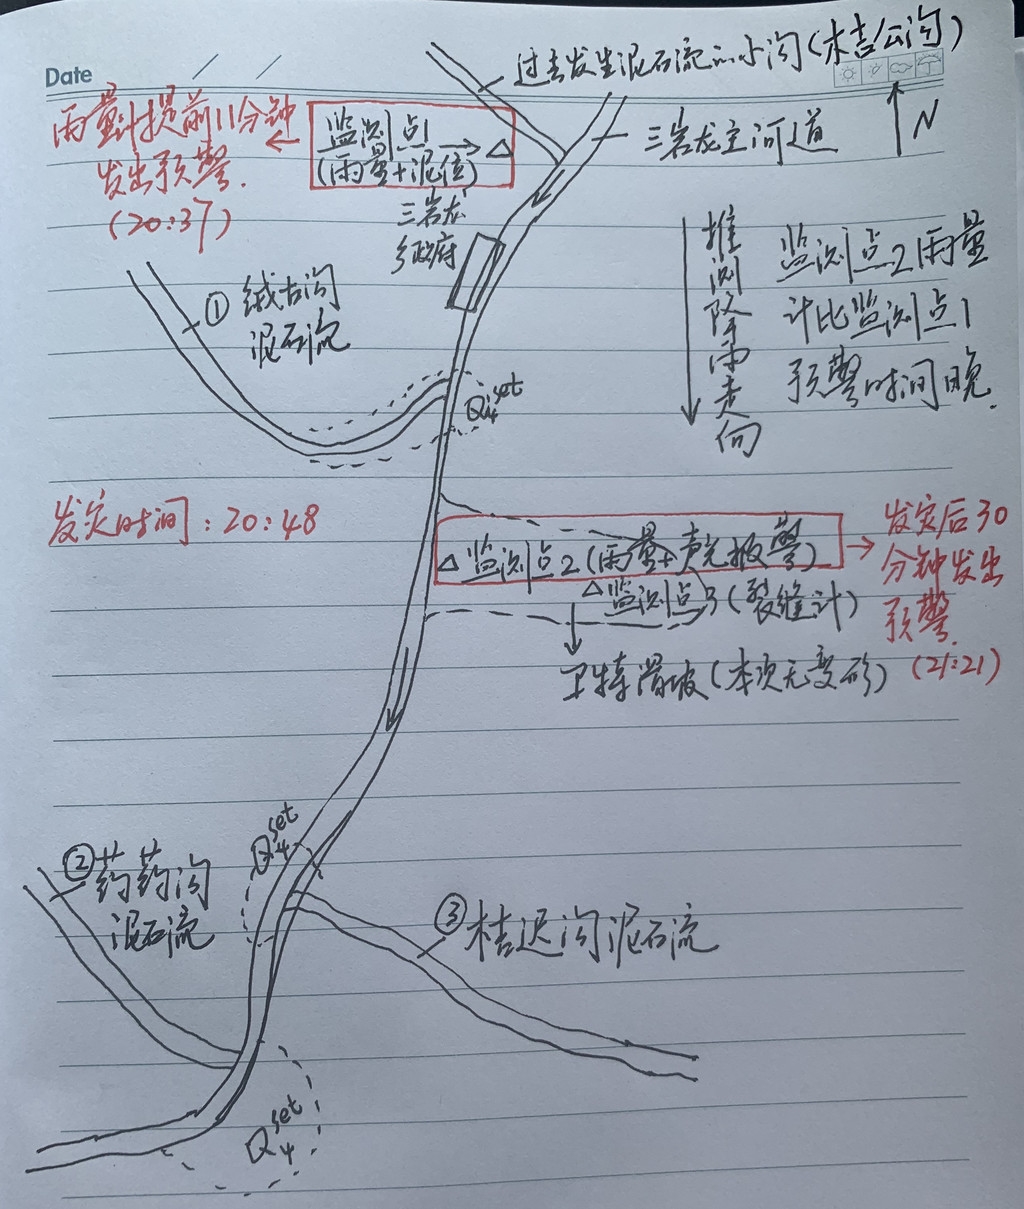 Date
过去发生泥石流的小沟(木吉公沟)
N
三岩龙主河道
雨量计提前11分钟
发出预警.
(20:37)
监测点1
(雨量+泥位)
三岩龙
乡政府
① 绒古沟
泥石流
推测降雨走向
监测点2雨量
计比监测点1
预警时间晚.
Q4set
发灾时间:20:48
监测点2(雨量+声光报警)
监测点3(裂缝计)
卫特滑坡(本次无变形)
发灾后30
分钟发出
预警.
(21:21)
Q4set
②药药沟
泥石流
③桔迟沟泥石流
Q4set